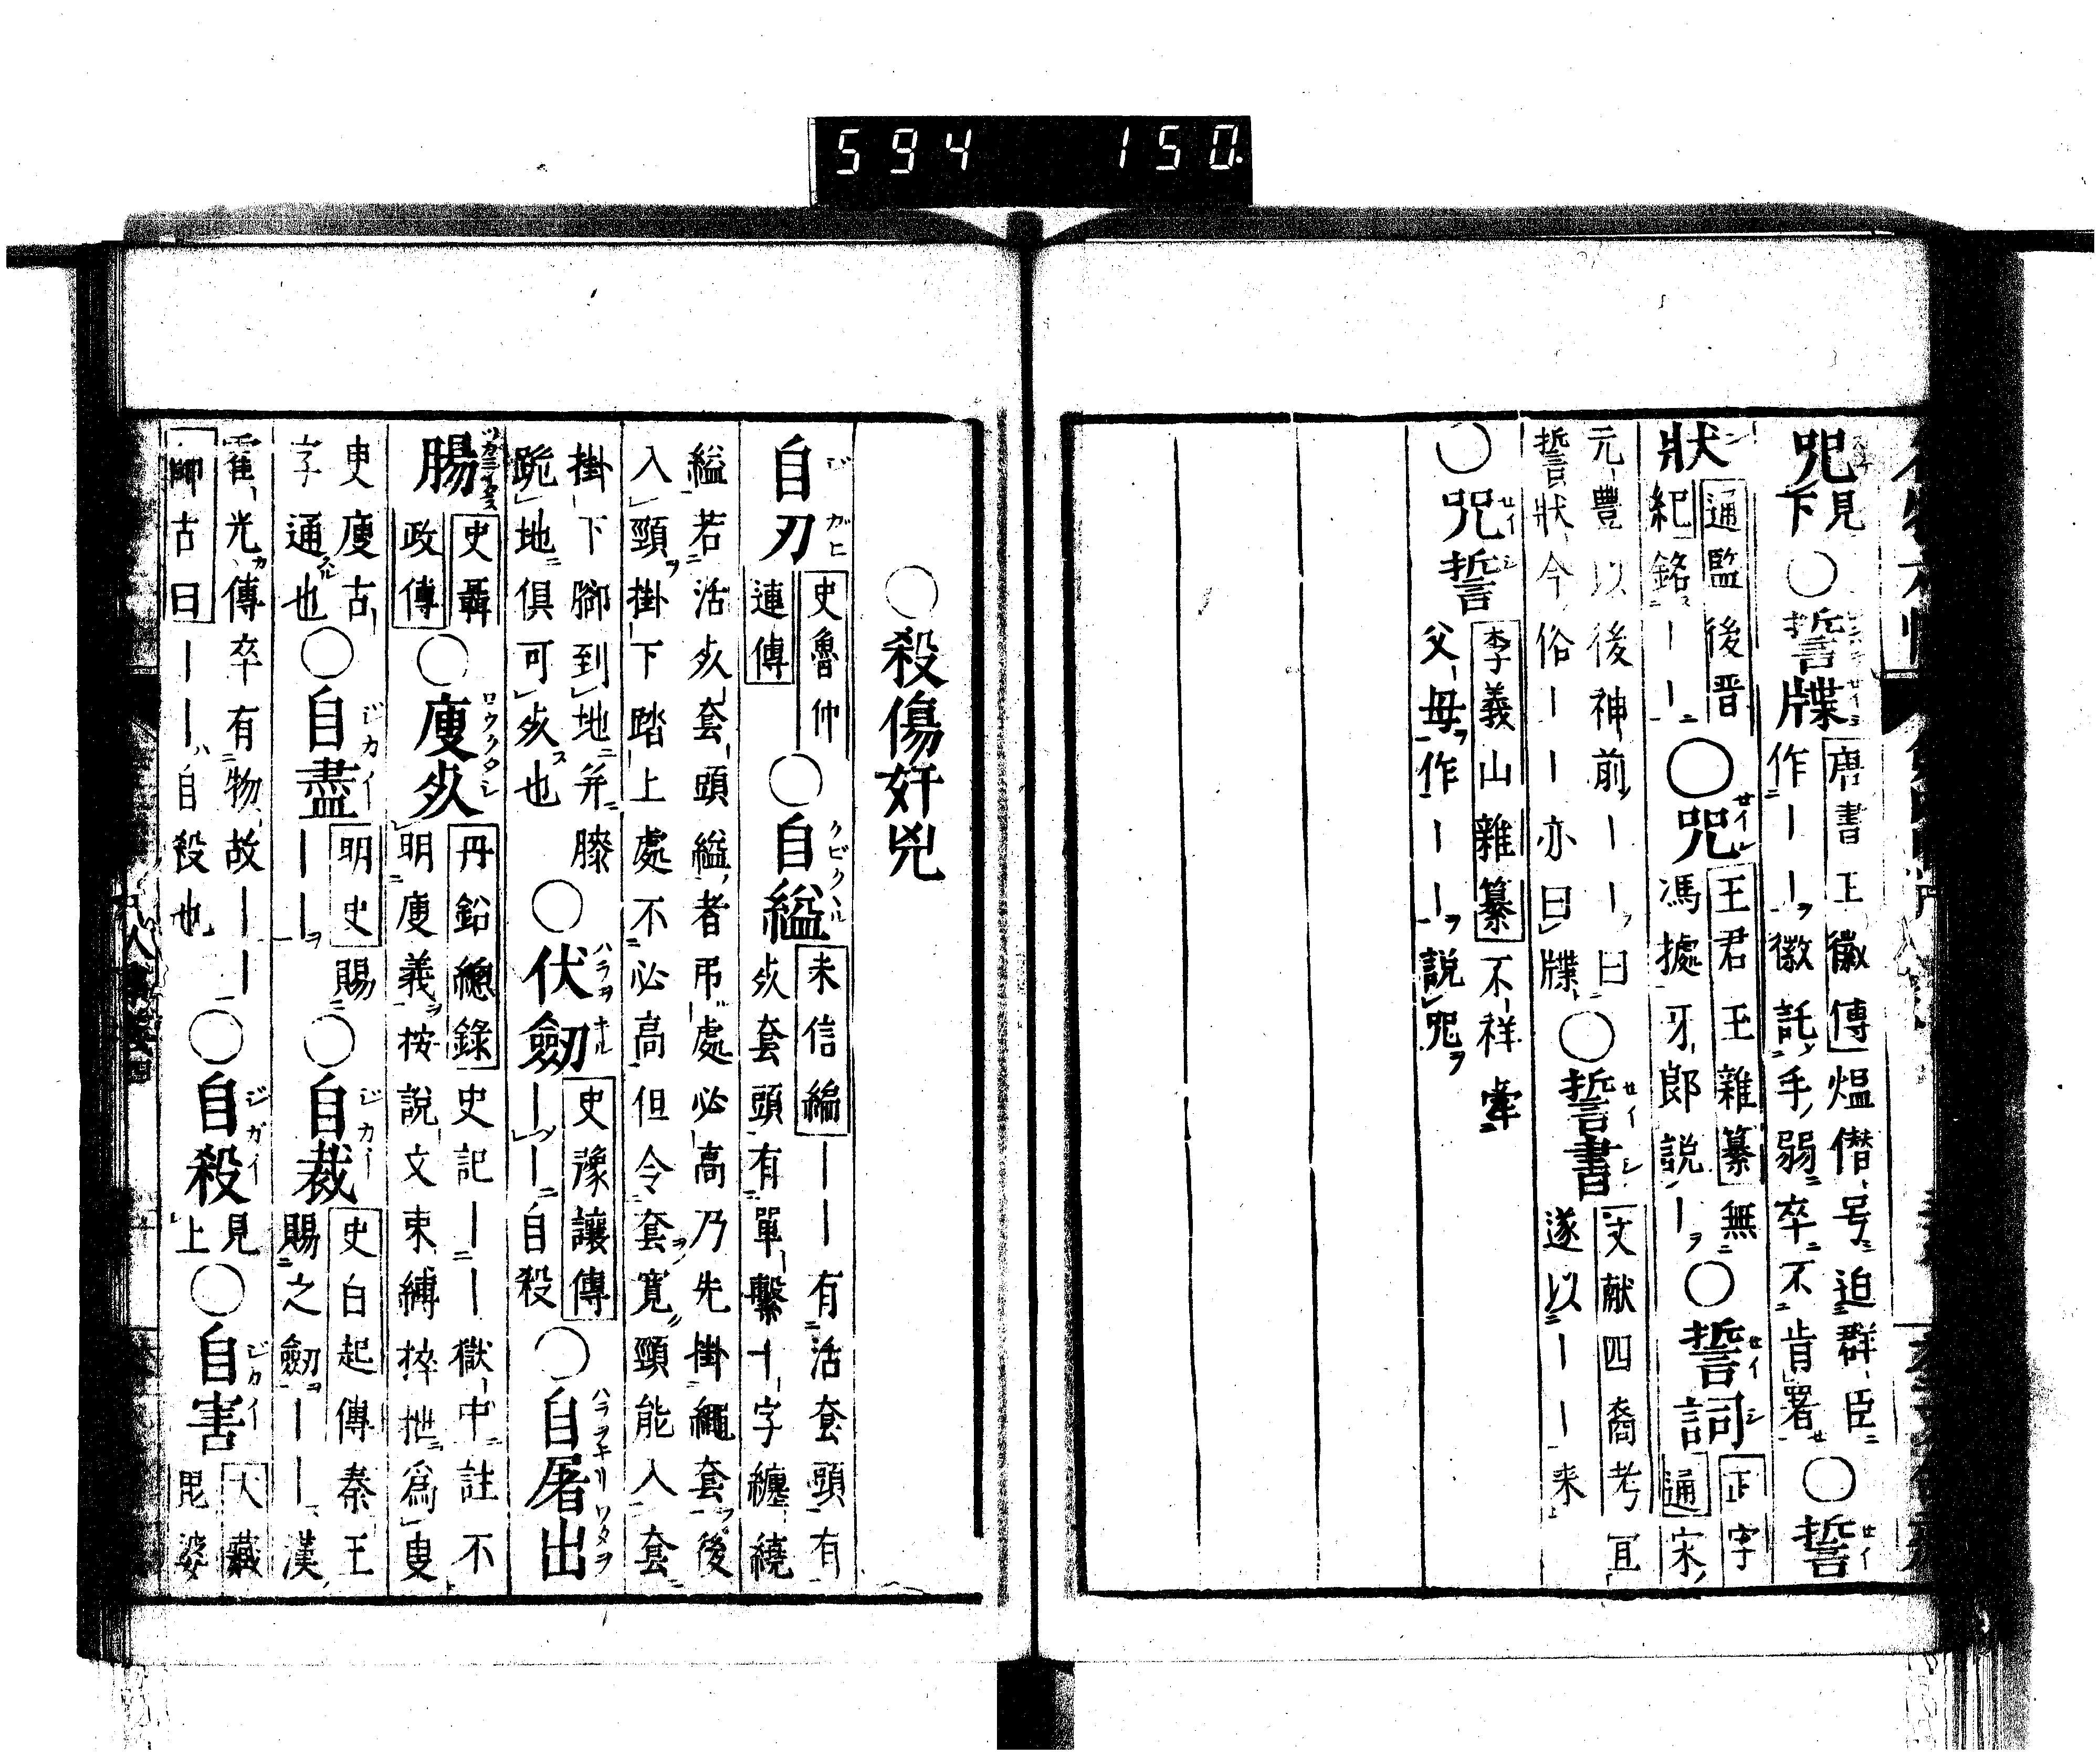 594 150
咒 見下 ○誓牒 唐書王徽傳 煴僭号迫群臣作｜｜徽託手弱卒不肯署 ○誓
狀 通監後晋紀 銘｜｜ ○咒 王君玉雜纂 無馮據牙郎説｜ ○誓詞 正字通 宋
元豊以後神前｜｜曰誓狀今俗｜｜亦曰牒 ○誓書 文献四裔考 宜遂以｜｜来
○咒誓 李義山雜纂 不祥牽父母作｜｜説咒
○殺傷奸兇
自刃 史魯仲連傳 ｜ ○自縊 未信編 ｜｜有活套頭有死套頭有單繫十字纏繞
縊若活死套頭縊者吊處必高乃先掛繩套後入頸掛下踏上處不必高但令套寛頸能入套
掛下脚到地并膝跪地俱可死也 ○伏劔 史豫讓傳 ｜｜自殺 ○自屠出
腸 史聶政傳 ○廋死 丹鉛總錄 史記｜｜獄中註不明廋義按説文束縛捽抴爲臾
臾廋古字通也 ○自盡 明史 賜｜｜ ○自裁 史白起傳 秦王賜之劔｜｜漢
霍光傳卒有物故｜｜師古曰｜｜自殺也 ○自殺 見上 ○自害 大藏毘婆